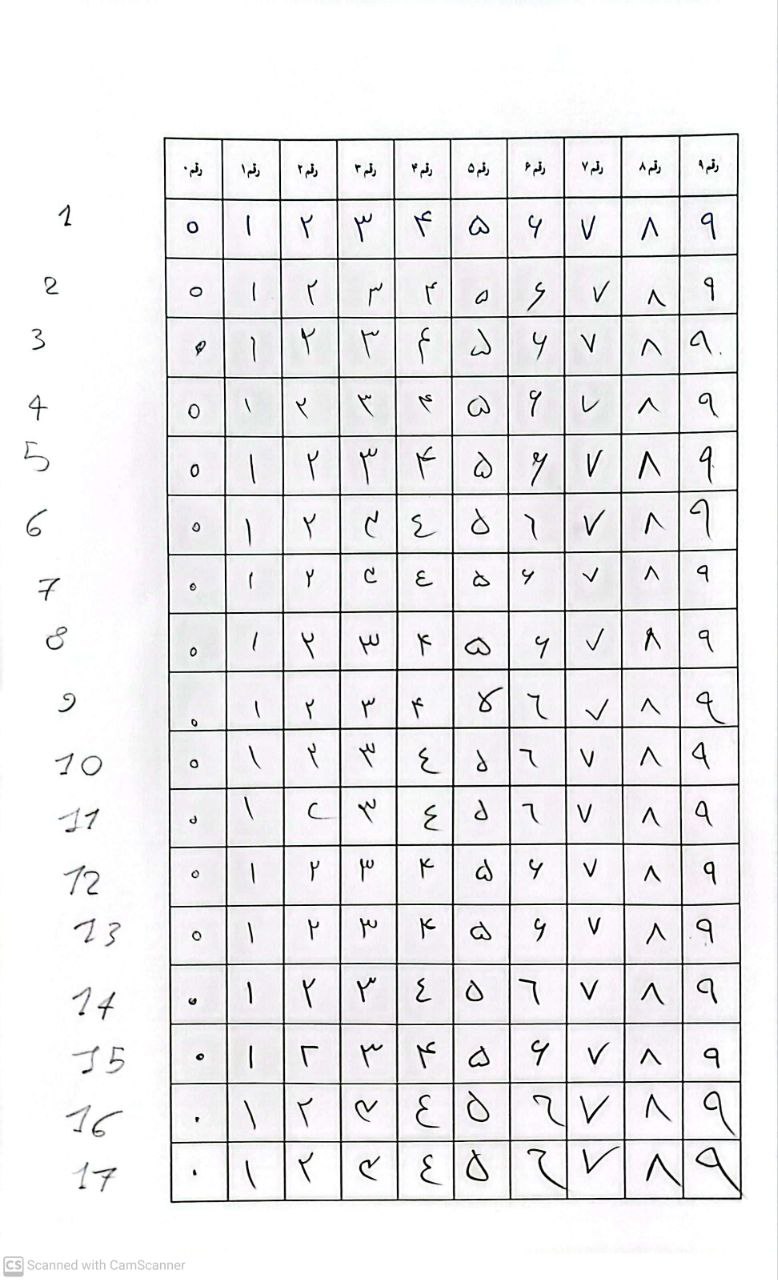 رقم ۰ رقم ۱ رقم ۲ رقم ۳ رقم ۴ رقم ۵ رقم ۶ رقم ۷ رقم ۸ رقم ۹
1 ۰ ۱ ۲ ۳ ۴ ۵ ۶ ۷ ۸ ۹
2 ۰ ۱ ۲ ۳ ۴ ۵ ۶ ۷ ۸ ۹
3 ۰ ۱ ۲ ۳ ۴ ۵ ۶ ۷ ۸ ۹
4 ۰ ۱ ۲ ۳ ۴ ۵ ۶ ۷ ۸ ۹
5 ۰ ۱ ۲ ۳ ۴ ۵ ۶ ۷ ۸ ۹
6 ۰ ۱ ۲ ۳ ٤ ۵ ٦ ۷ ۸ ۹
7 ۰ ۱ ۲ ۳ ٤ ۵ ۶ ۷ ۸ ۹
8 ۰ ۱ ۲ ۳ ۴ ۵ ۶ ۷ ۸ ۹
9 ۰ ۱ ۲ ۳ ۴ ۵ ٦ ۷ ۸ ۹
10 ۰ ۱ ۲ ۳ ٤ ۵ ٦ ۷ ۸ ۹
11 ۰ ۱ ۲ ۳ ٤ ۵ ٦ ۷ ۸ ۹
12 ۰ ۱ ۲ ۳ ۴ ۵ ۶ ۷ ۸ ۹
13 ۰ ۱ ۲ ۳ ۴ ۵ ۶ ۷ ۸ ۹
14 ۰ ۱ ۲ ۳ ٤ ۵ ٦ ۷ ۸ ۹
15 ۰ ۱ ۲ ۳ ۴ ۵ ۶ ۷ ۸ ۹
16 ۰ ۱ ۲ ۳ ٤ ۵ ٦ ۷ ۸ ۹
17 ۰ ۱ ۲ ۳ ٤ ۵ ٦ ۷ ۸ ۹
CS Scanned with CamScanner